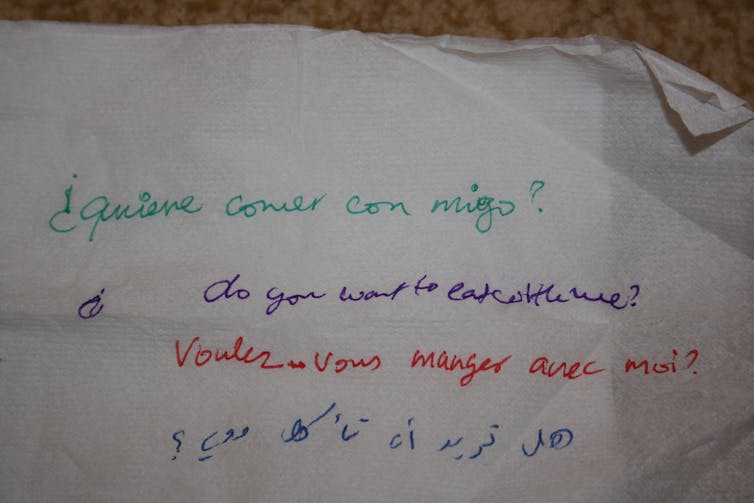 ¿quiere comer con migo?
¿ do you want to eat with me?
Voulez-vous manger avec moi?
هل تريد أن تأكل معي؟